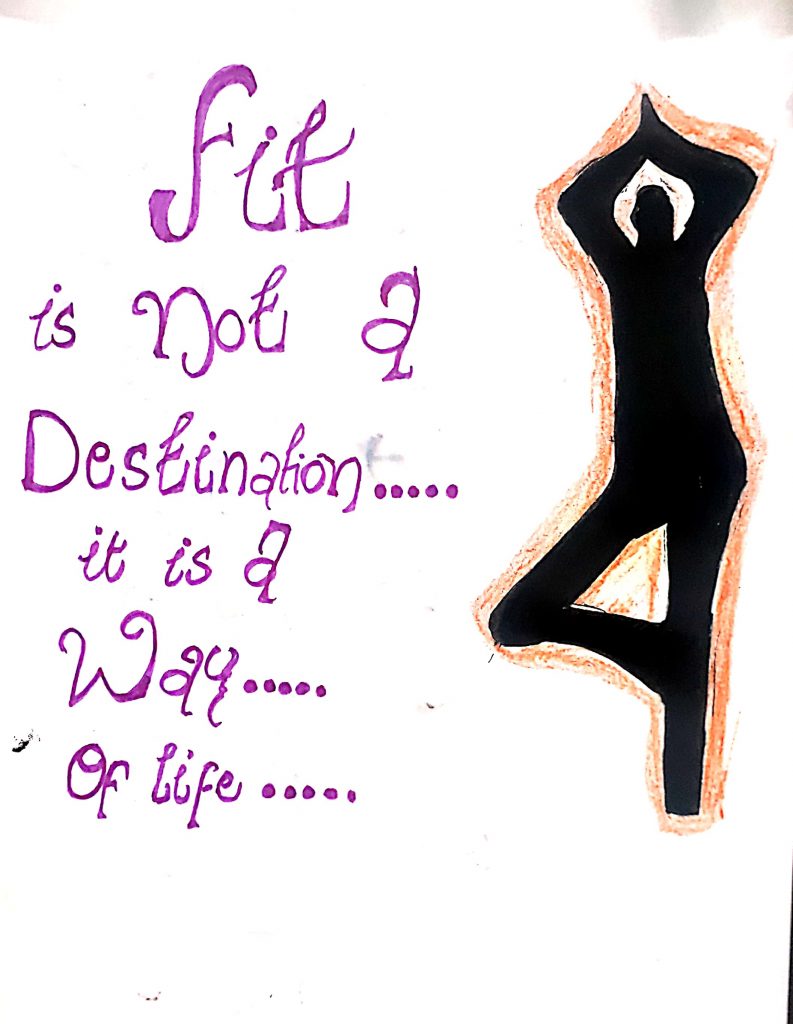 Fit
is Not a
Destination.....
it is a
Way.....
Of life.....